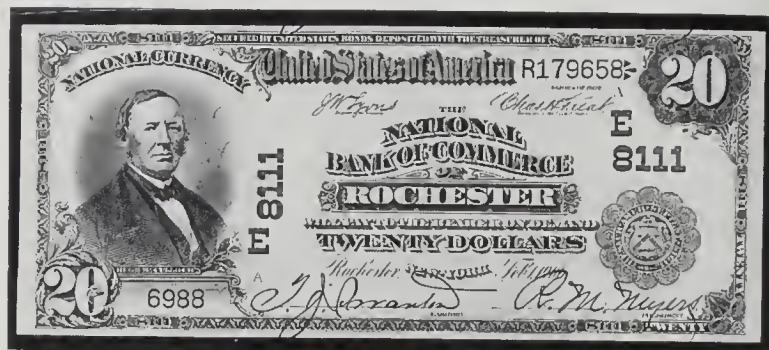 SECURED BY UNITED STATES BONDS DEPOSITED WITH THE TREASURER OF
20
NATIONAL CURRENCY
United States of America
R179658
20
J W Lyons
Chas H Treat
THE
NATIONAL
BANK OF COMMERCE
OF
ROCHESTER
WILL PAY TO THE BEARER ON DEMAND
TWENTY DOLLARS
E 8111
E
8111
Rochester, NEW YORK,
HUGH McCULLOCH
20
6988
A
R. M. Myers
PRESIDENT
TWENTY